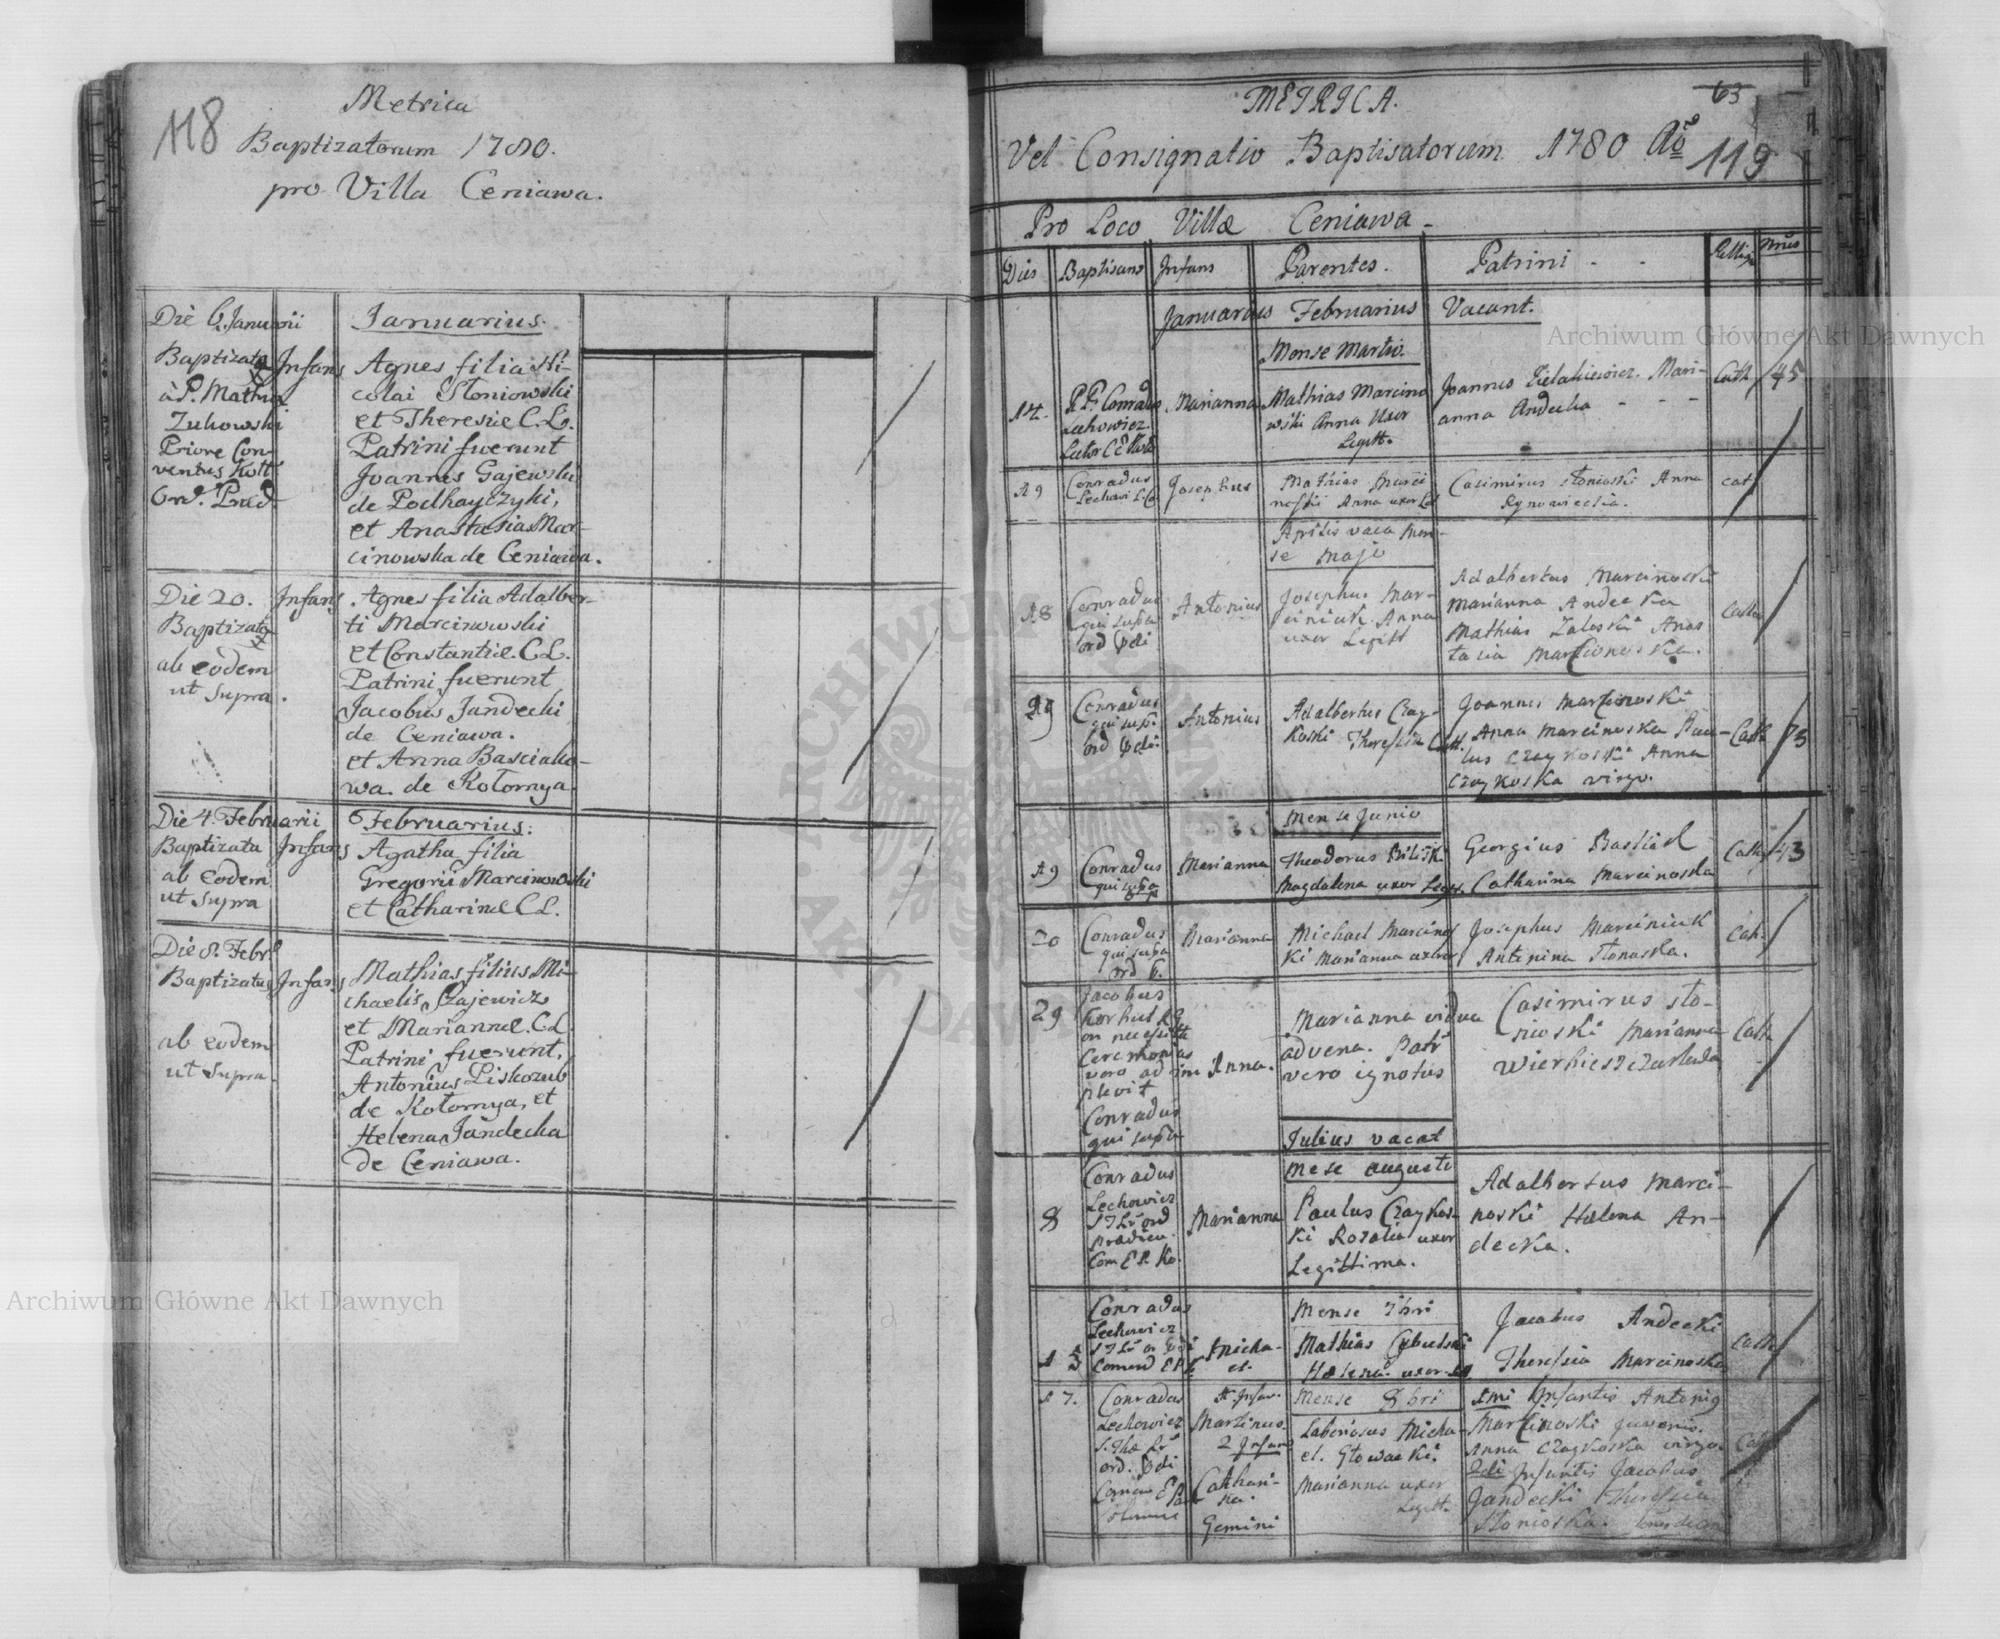 118
Metrica
Baptizatorum 1780.
pro Villa Ceniawa.
Die 6. Januarii
Baptizata Infans
à P. Mathia
Zukowski
Priore Con-
ventus Kołł
Ord. Præd.
Januarius.
Agnes filia Ni-
colai Słoniowski
et Theresiæ C. L.
Patrini fuerunt
Joannes Gajewski
de Podhayczyki,
et Anastasia Mar-
cinowska de Ceniawa.
Die 20. Infans
Baptizata
ab eodem
ut Supra.
Agnes filia Adalber-
ti Marcinowski
et Constantiæ. C. L.
Patrini fuerunt
Jacobus Jandecki
de Ceniawa.
et Anna Basciako-
wa. de Kołomya.
Die 4. Februarii
Baptizata Infans
ab Eodem
ut Supra
Februarius.
Agatha filia
Gregorii Marcinowski
et Catharinæ C L.
Die 8. Febr.
Baptizatus Infans
ab eodem
ut Supra.
Mathias filius Mi-
chaelis Szajewicz
et Mariannæ. C. L.
Patrini fuerunt,
Antonius Liskozub
de Kołomya, et
Helena Jandecka
de Ceniawa.
METRICA.
63
Vel Consignatio Baptisatorum 1780 Ao
119
Pro Loco Villæ Ceniawa.
Dies Baptisans Infans Parentes. Patrini - - Religio Nrus
Januarius Februarius Vacant.
Mense Martio.
14. Marianna
R. P. Conradus
Lechowicz
Mathias Marcino
wski Anna Uxor
Legitt.
Joannes Zielakiewicz. Mari-
anna Andecka - - -
Cath 45
19 Conradus Josephus
Mathias Marci
noski Anna uxor
Casimirus Słonioski Anna
cat
Aprilis vaca Men-
se Majo
18 Conradus
qui supra
ord Pdi
Antonius
Josephus Mar-
ciniuk Anna
uxor Legitt
Adalbertus Marcinoski
Marianna Andecka
Mathias Zaloski Anas
tasia Marcionoska.
Cath
29 Conradus
qui sup.
ord Pdi
Antonius
Adalbertus Czay-
koski Theressia
Joannes Marcinoski
Anna Marcinoska Pau-
lus Czaykoski Anna
Czaykoska virgo.
Cath 73
Mense Junio
19 Conradus
qui supa
Marianna
Theodorus Biliski
Magdalena uxor Legtt.
Georgius
Catharina Marcinoska
Cath 43
20 Conradus
qui supa
ord P.
Marianna
Michael Marcinos
ki Marianna uxor
Josephus Marciniuk
Antonina Słonoska.
Cath.
29 Jacobus
Korhut
ceremonias
vero adim
plevit
Conradus
qui supra
Anna.
Marianna vidua
advena. Patr
vero ignotus
Casimirus Sło-
nioski Marianna
Cath
Julius vacat
Mese augusti
8
Conradus
Lechowicz
Marianna
Paulus Czaykos-
ki Rozalia uxor
Legittima.
Adalbertus Marci-
noski Halena An-
decka.
Mense 7bri
13
Conradus
Lechowicz
Micha-
el.
Mathias Cybulski
Halena uxor
Jacobus Andecki
Theressia Marcinoska
Cath
Mense 8bri
17. Conradus
Lechowicz
ord. Pdi
Martinus.
2 Infans
Cathari-
na.
Gemini
Laboriosus Micha-
el. Głowacki.
Marianna uxor
Legitt.
1mi Infantis Antonius
Marcinoski juvenis.
Anna Czaykoska virgo.
2di Infantis Jacobus
Jandecki Theressia
Słonioska.
Archiwum Główne Akt Dawnych
Archiwum Główne Akt Dawnych
ARCHIWUM GŁÓWNE AKT DAWNYCH